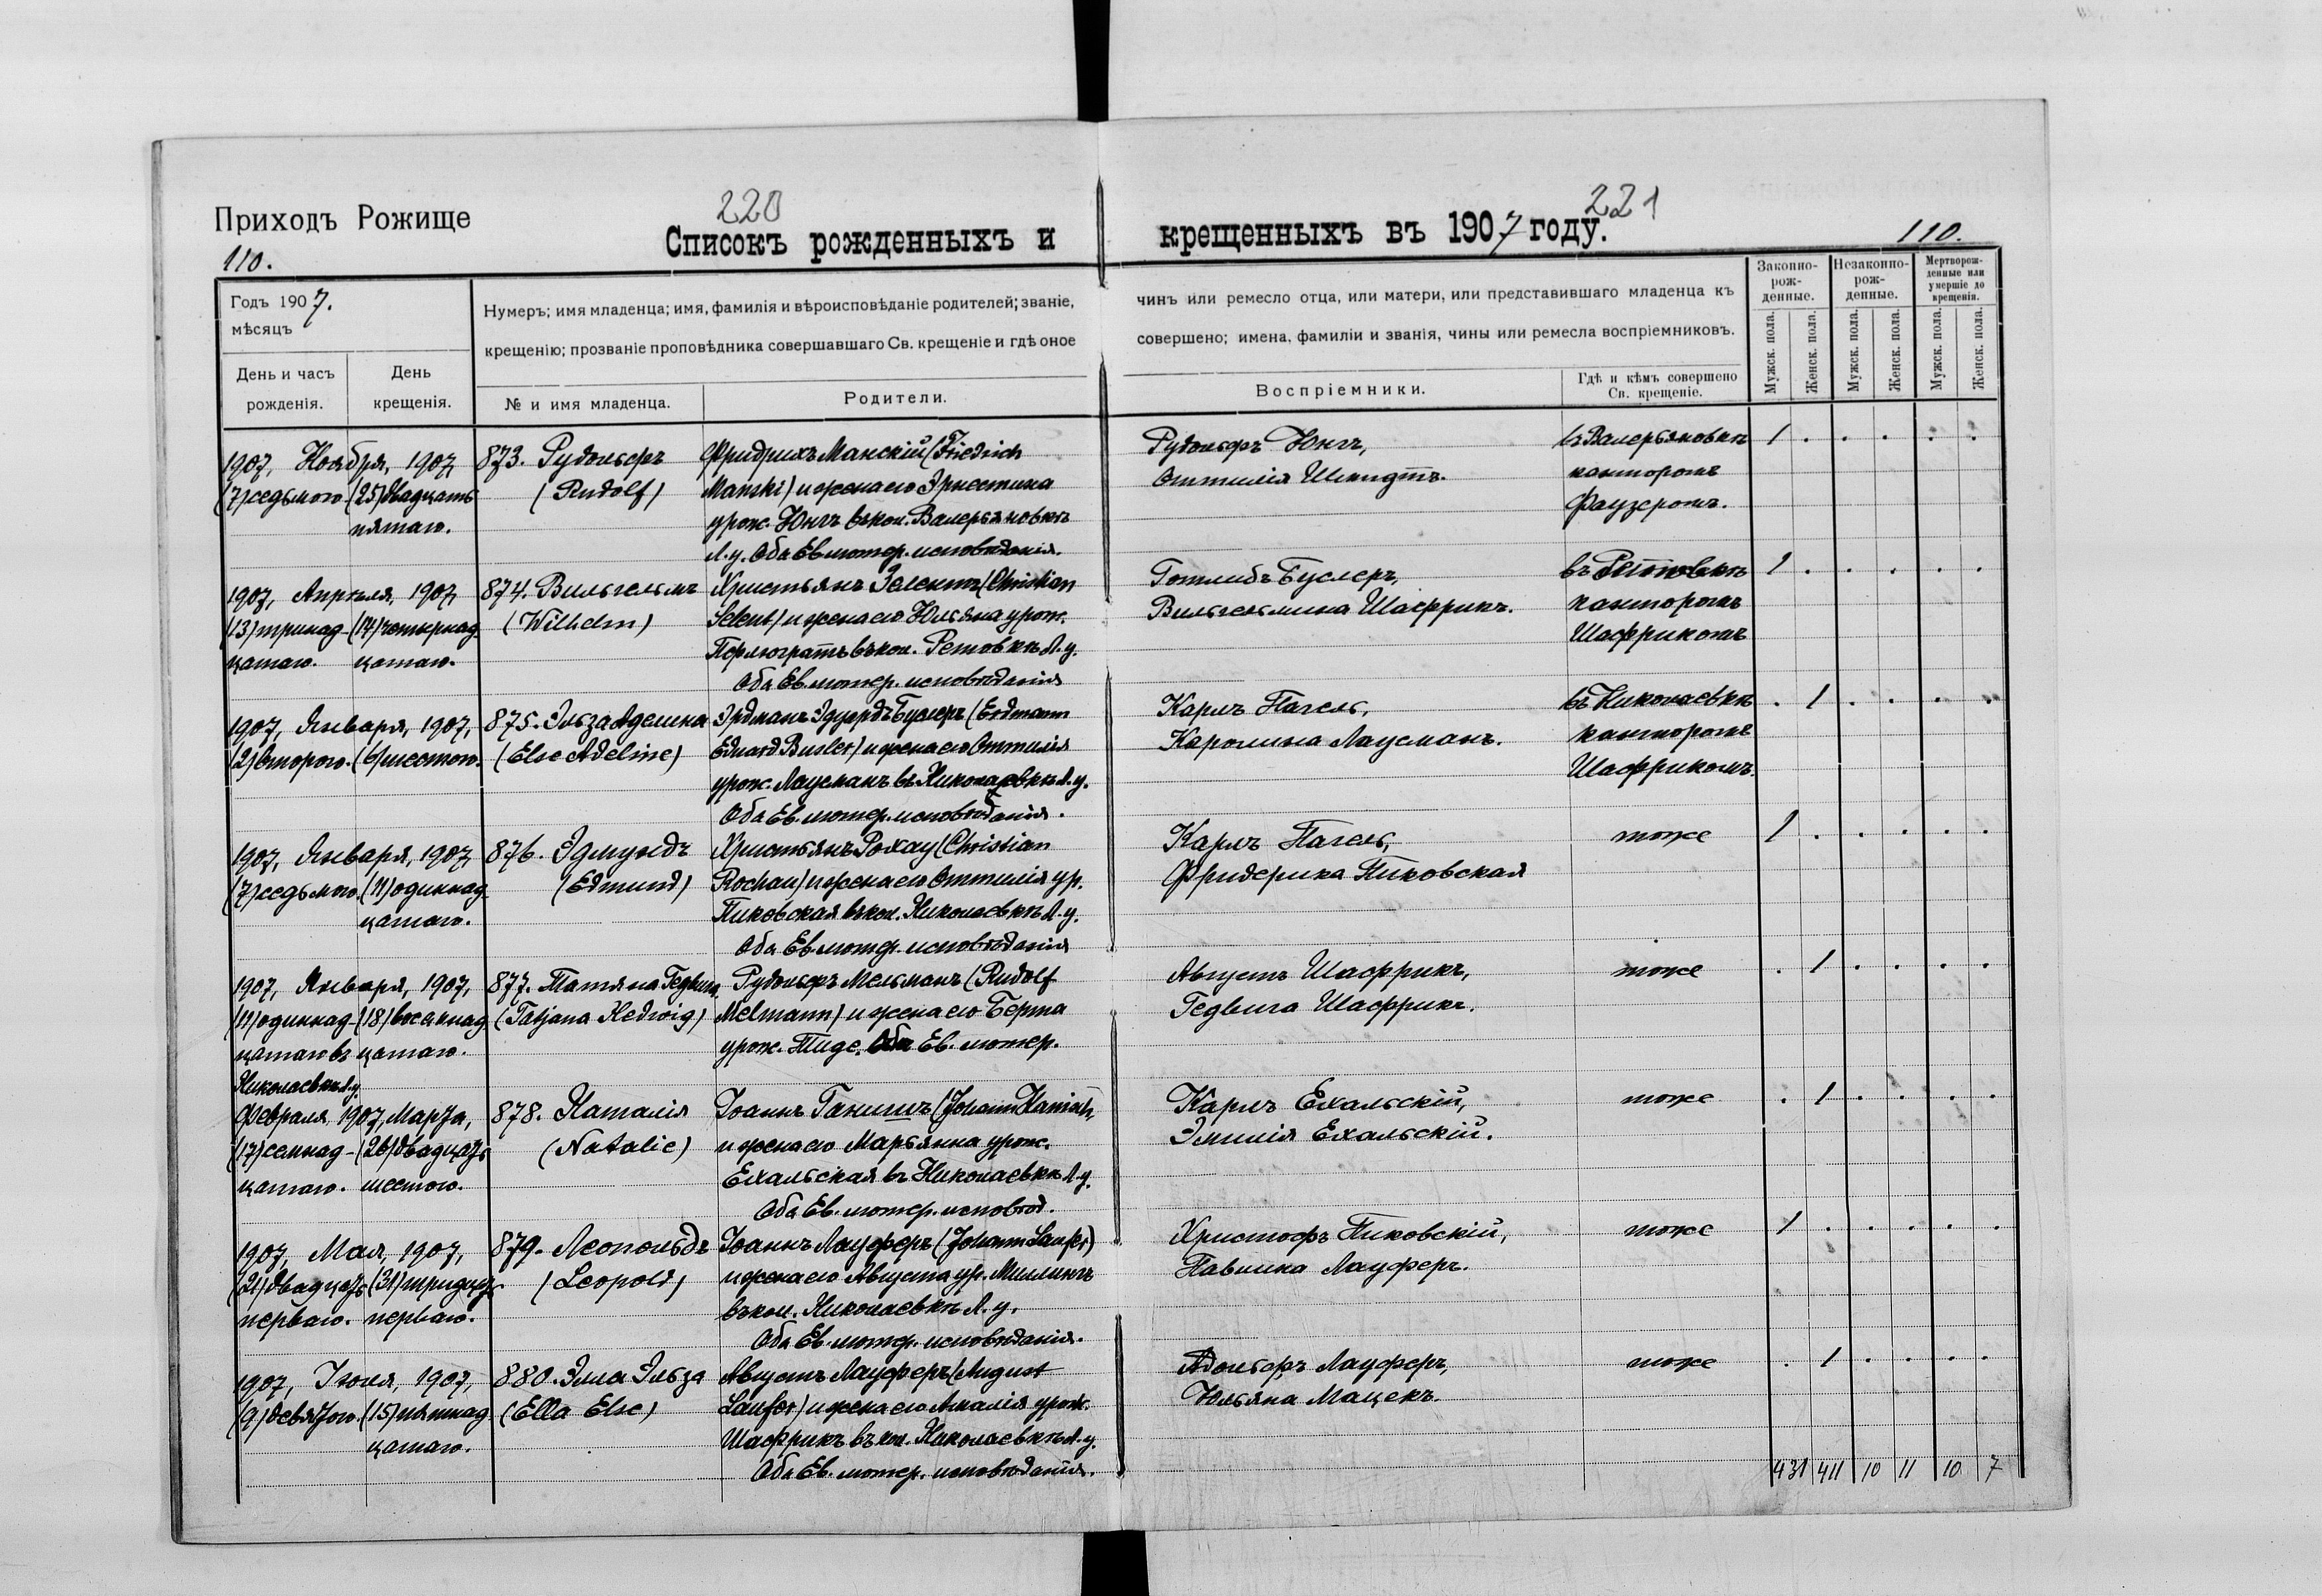 220
221
Приходъ Рожище
Списокъ рожденныхъ и крещенныхъ въ 1907 году.
110.
110.
Годъ 1907.
мѣсяцъ
День и часъ рожденія.
День крещенія.
Нумеръ; имя младенца; имя, фамилія и вѣроисповѣданіе родителей; званіе,
чинъ или ремесло отца, или матери, или представившаго младенца къ
крещенію; прозваніе проповѣдника совершавшаго Св. крещеніе и гдѣ оное
совершено; имена, фамиліи и званія, чины или ремесла воспріемниковъ.
№ и имя младенца.
Родители.
Воспріемники.
Гдѣ и кѣмъ совершено
Св. крещеніе.
Законно-
рож-
денные.
Незаконно-
рож-
денные.
Мертворож-
денные или
умершіе до
крещенія.
Мужск. пола.
Женск. пола.
Мужск. пола.
Женск. пола.
Мужск. пола.
Женск. пола.
1907, Ноября, 1907
(7) седьмого. (25) двадцать
пятаго.
873. Рудольфъ
(Rudolf)
Фридрихъ Манскій (Friedrich
Manski) и жена его Эрнестина
урож. Юнгъ въ кол. Валерьяновкѣ
Л. у. Оба Ев. лютер. исповѣданія.
Рудольфъ Юнгъ,
Оттилія Шмидтъ.
въ Валерьяновкѣ
канторомъ
Фаузеромъ.
1 . . . . .
1907, Апрѣля, 1907
(13) тринад- (14) четырнад
цатаго. цатаго.
874. Вильгельмъ
(Wilhelm)
Христьянъ Зелентъ (Christian
Selent) и жена его Юльяна урож.
въ кол. Ретовкѣ Л. у.
Оба Ев. лютер. исповѣданія
Готлибъ Буслеръ,
Вильгельмина Шаффрикъ.
въ Ретовкѣ
канторомъ
Шаффрикомъ
1 . . . . .
1907, Января, 1907,
(2) второго. (6) шестого.
875. Эльза Аделина
(Else Adeline)
Эрдманъ Эдуардъ Буслеръ (Erdmann
Eduard Busler) и жена его Оттилія
урож. Лаусманъ въ Николаевкѣ Л. у.
Оба Ев. лютер. исповѣданія.
Карлъ Пагель,
Каролина Лаусманъ.
въ Николаевкѣ
канторомъ
Шаффрикомъ.
. 1 . . . .
1907, Января, 1907
(7) седьмого. (11) одиннад
цатаго.
876. Эдмундъ
(Edmund)
Христьянъ Рохау (Christian
Rochau) и жена его Оттилія ур.
Пиковская въ кол. Николаевкѣ Л. у.
Оба Ев. лютер. исповѣданія
Карлъ Пагель,
Фридерика Пиковская
тоже
1 . . . . .
1907, Января, 1907,
(11) одиннад- (18) восемнад
цатаго въ цатаго.
Николаевкѣ Л. у.
877. Татяна Гедвига
(Tatjana Hedwig)
Рудольфъ Мельманъ (Rudolf
Melmann) и жена его Берта
урож. Тиде. Оба Ев. лютер.
Августъ Шаффрикъ,
Гедвига Шаффрикъ.
тоже
. 1 . . . .
Февраля 1907, Марта,
(17) семнад- (26) двадцать
цатаго. шестого.
878. Наталія
(Natalie)
Іоаннъ Ганишъ (Johann Hanisch)
и жена его Марьянна урож.
Ехальская въ Николаевкѣ Л. у.
Оба Ев. лютер. исповѣд.
Карлъ Ехальскій,
Эмилія Ехальскій.
тоже
. 1 . . . .
1907, Мая, 1907,
(21) двадцать (31) тридцать
перваго. перваго.
879. Леопольдъ
(Leopold)
Іоаннъ Лауферъ (Johann Laufer)
и жена его Августа ур. Миллингъ
въ кол. Николаевкѣ Л. у.
Оба Ев. лютер. исповѣданія.
Христофъ Пиковскій,
Павлина Лауферъ.
тоже
1 . . . . .
1907, Іюля, 1907,
(9) девятого. (15) пятнад
цатаго.
880. Элла Эльза
(Ella Else)
Августъ Лауферъ (August
Laufer) и жена его Амалія урож.
Шаффрикъ въ кол. Николаевкѣ Л. у.
Оба Ев. лютер. исповѣданія.
Адольфъ Лауферъ,
Юльяна Мацекъ.
тоже
. 1 . . . .
431 411 10 11 10 7